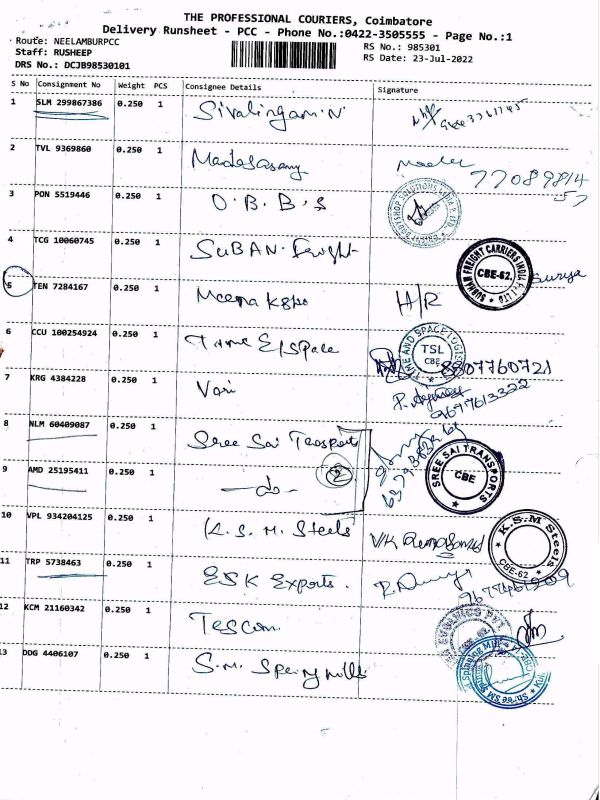 THE PROFESSIONAL COURIERS, Coimbatore
Delivery Runsheet - PCC - Phone No.:0422-3505555 - Page No.:1
Route: NEELAMBURPCC
RS No.: 985301
Staff: RUSHEEP
RS Date: 23-Jul-2022
DRS No.: DCJB98530101
S No Consignment No Weight PCS Consignee Details Signature
1 SLM 299867386 0.250 1 Sivalingam.N
2 TVL 9369860 0.250 1 Madasasamy
77089814
57
3 PON 5519446 0.250 1 O.B.B.S
4 TCG 10060745 0.250 1 SUBAN. Freight
SUBHAN FREIGHT CARRIERS INDIA PVT LTD CBE-62. Surya
5 TEN 7284167 0.250 1 Meenakshi H/R
6 CCU 100254924 0.250 1 Time & Space
TIME AND SPACE LOGIS TSL CBE 8807760721
7 KRG 4384228 0.250 1 Vari
9697613322
8 NLM 60409087 0.250 1 Sree Sai Transports
SREE SAI TRANSPORTS CBE
9 AMD 25195411 0.250 1 -do- 2
10 VPL 934204125 0.250 1 K.S.M. Steels
K.S.M Steels CBE-62
11 TRP 5738463 0.250 1 ESK Exports.
12 KCM 21160342 0.250 1 Tescom
13 DDG 4406107 0.250 1 S.M. Spening mills